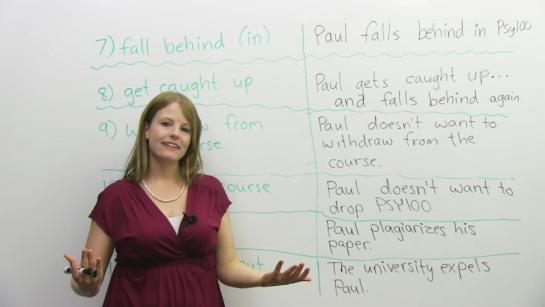 7) fall behind (in)
Paul falls behind in Psy100
8) get caught up
Paul gets caught up...
and falls behind again
9) w w from
rse
Paul doesn't want to
withdraw from the
course.
course
Paul doesn't want to
drop PSY100.
Paul plagiarizes his
paper.
out
The university expels
Paul.